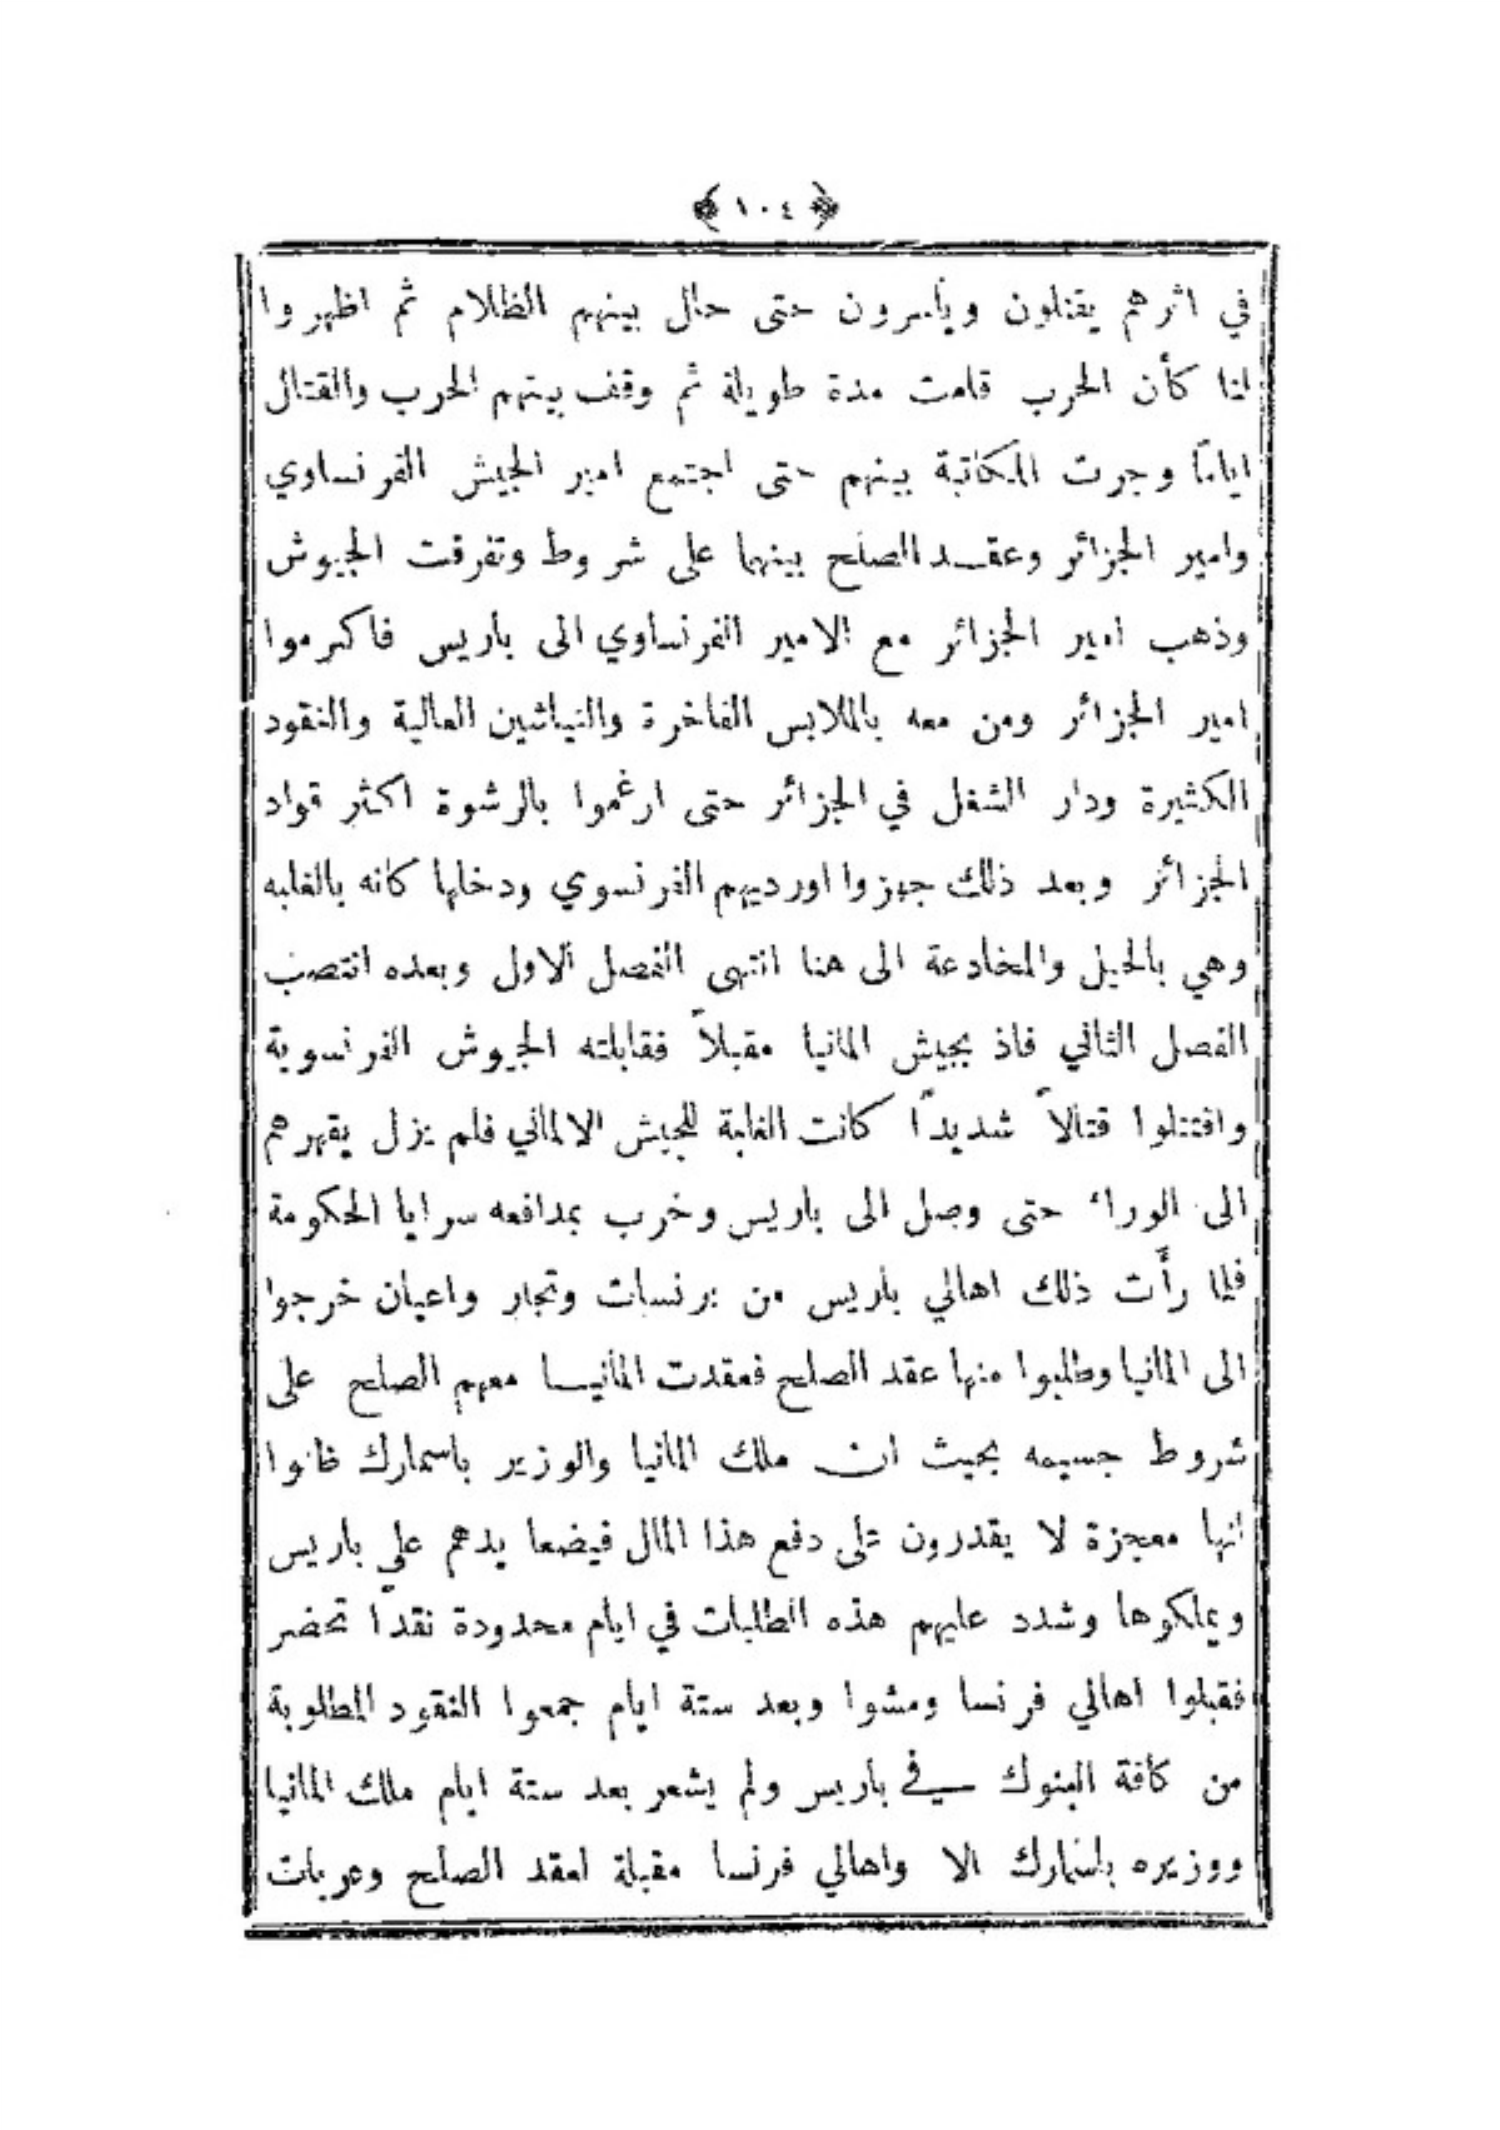 ﴿ ١٠٤ ﴾
في اثرهم يقتلون ويأسرون حتى حال بينهم الظلام ثم اظهروا
لنا كأن الحرب قامت مدة طويلة ثم وقف بينهم الحرب والقتال
اياما وجرت المكاتبة بينهم حتى اجتمع امير الجيش الفرنساوي
وامير الجزائر وعقد الصلح بينهما على شروط وتفرقت الجيوش
وذهب امير الجزائر مع الامير الفرنساوي الى باريس فاكرموا
امير الجزائر ومن معه بالملابس الفاخرة والنياشين العالية والنقود
الكثيرة ودار الشغل في الجزائر حتى ارغموا بالرشوة اكثر قواد
الجزائر وبعد ذلك جهزوا اورديهم الفرنسوي ودخلها كانه بالغلبه
وهي بالحيل والمخادعة الى هنا انتهى الفصل الاول وبعده انتصب
الفصل الثاني فاذ بجيش المانيا مقبلاً فقابلته الجيوش الفرنسوية
واقتتلوا قتالاً شديدًا كانت الغلبة للجيش الالماني فلم يزل يقهرهم
الى الوراء حتى وصل الى باريس وخرب بمدافعه سرايا الحكومة
فلما رأت ذلك اهالي باريس من برنسات وتجار واعيان خرجوا
الى المانيا وطلبوا منها عقد الصلح فعقدت المانيا معهم الصلح على
شروط جسيمه بحيث ان ملك المانيا والوزير باسمارك ظنوا
انها معجزة لا يقدرون على دفع هذا المال فيضعا يدهم على باريس
ويملكوها وشدد عليهم هذه الطلبات في ايام محدودة نقدًا تحضر
فقبلوا اهالي فرنسا ومشوا وبعد ستة ايام جمعوا النقود المطلوبة
من كافة البنوك في باريس ولم يشعر بعد ستة ايام ملك المانيا
ووزيره باسمارك الا واهالي فرنسا مقبلة لعقد الصلح وعربات